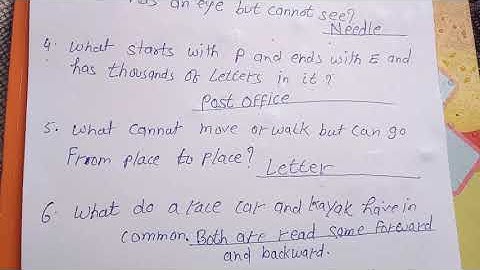 has an eye but cannot see?
Needle
4. What starts with P and ends with E and
has thousands of Letters in it?
Post office
5. What cannat move or walk but can go
From place to place? Letter
6. What do a race car and kayak have in
common. Both are read same forward
and backward.